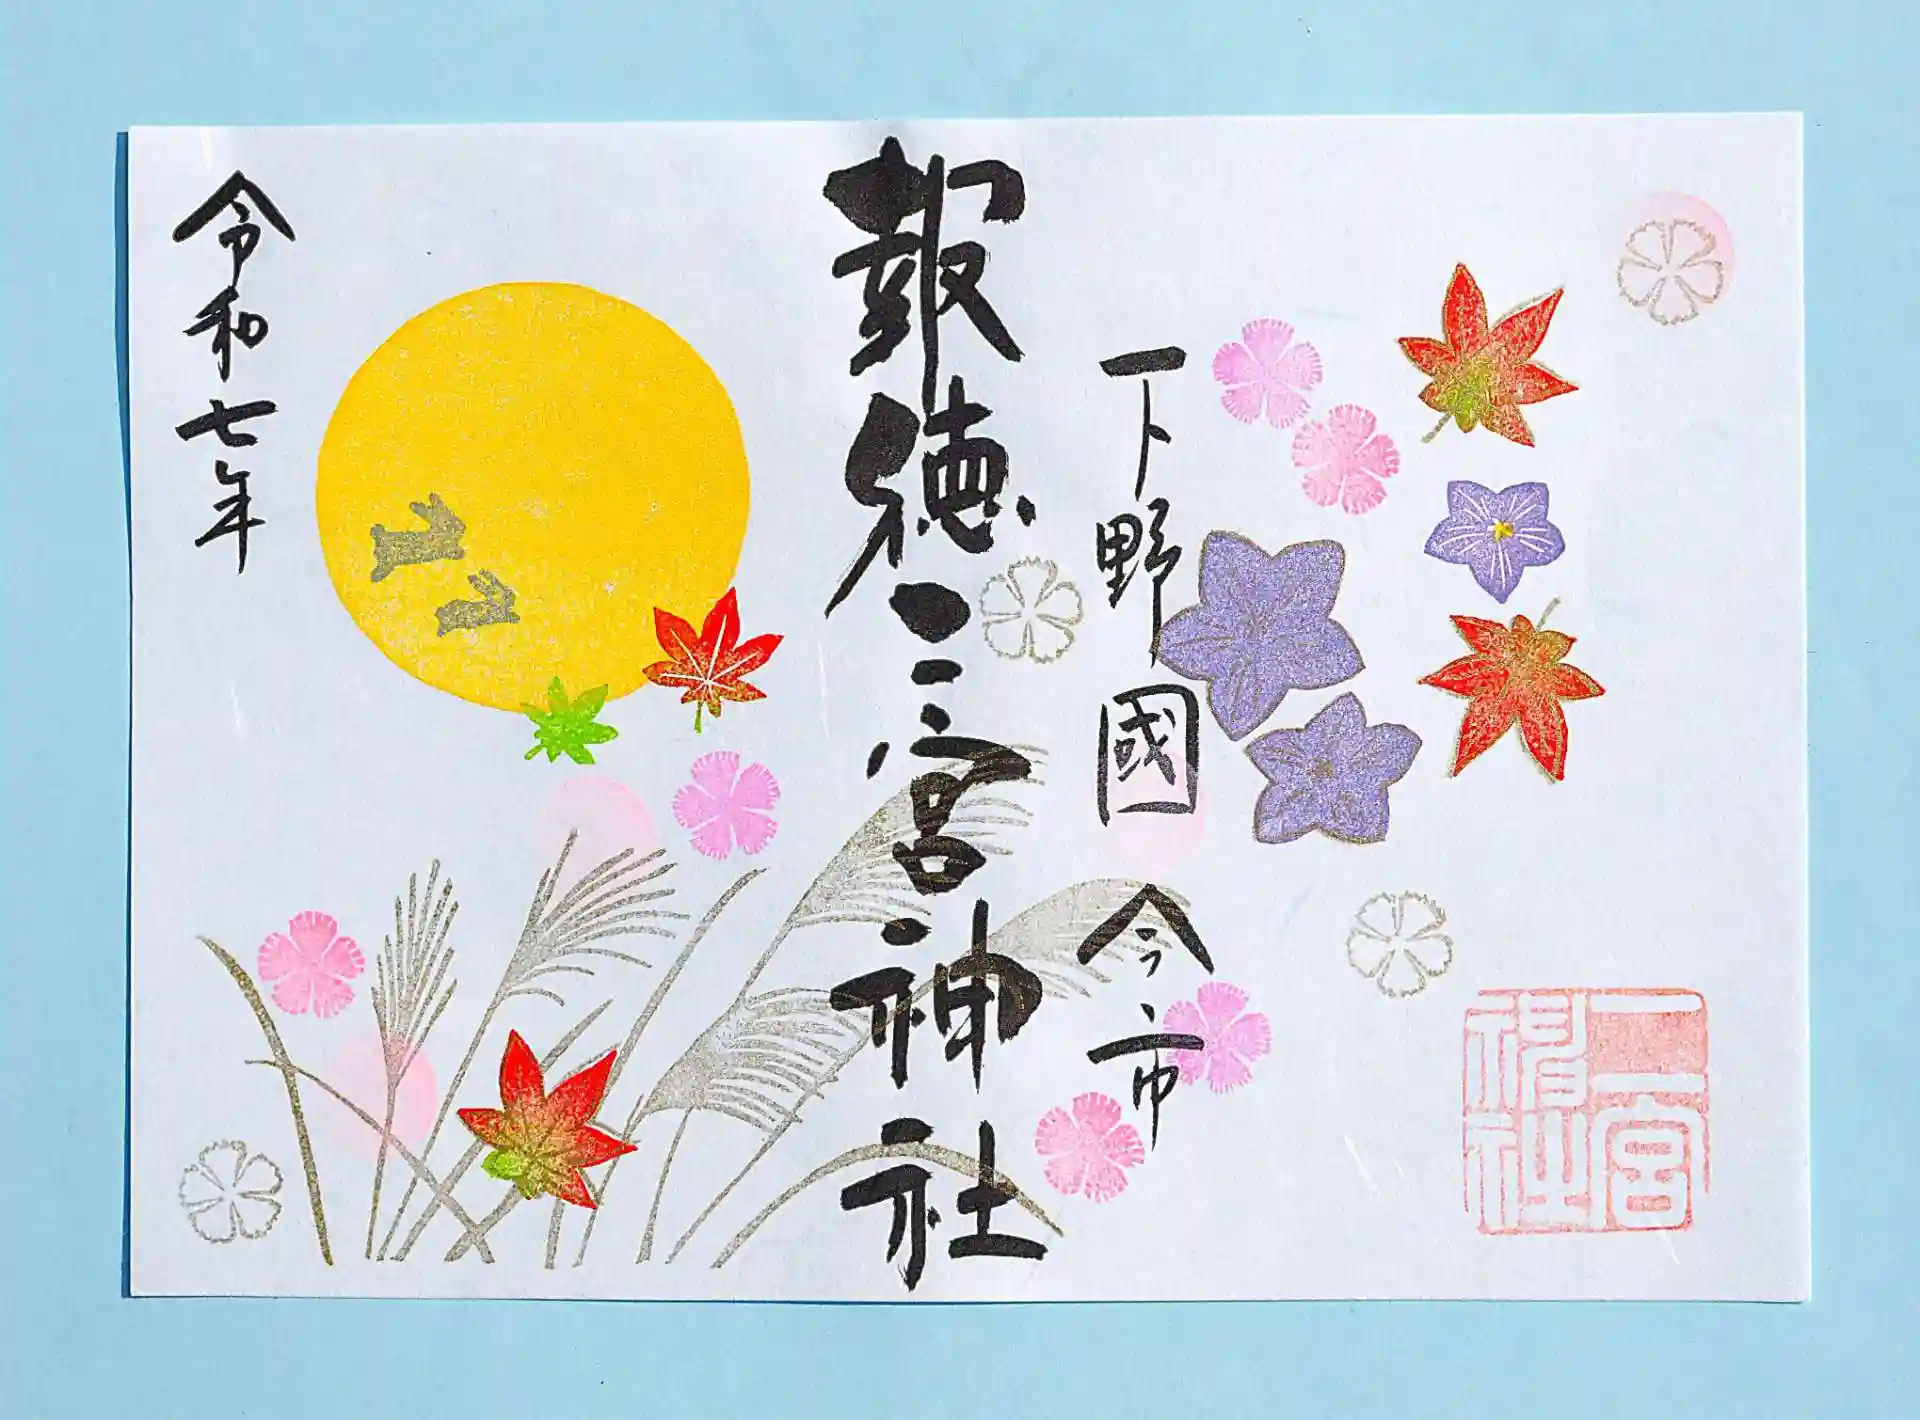 下野國 今市
報徳二宮神社
令和七年
二宮神社